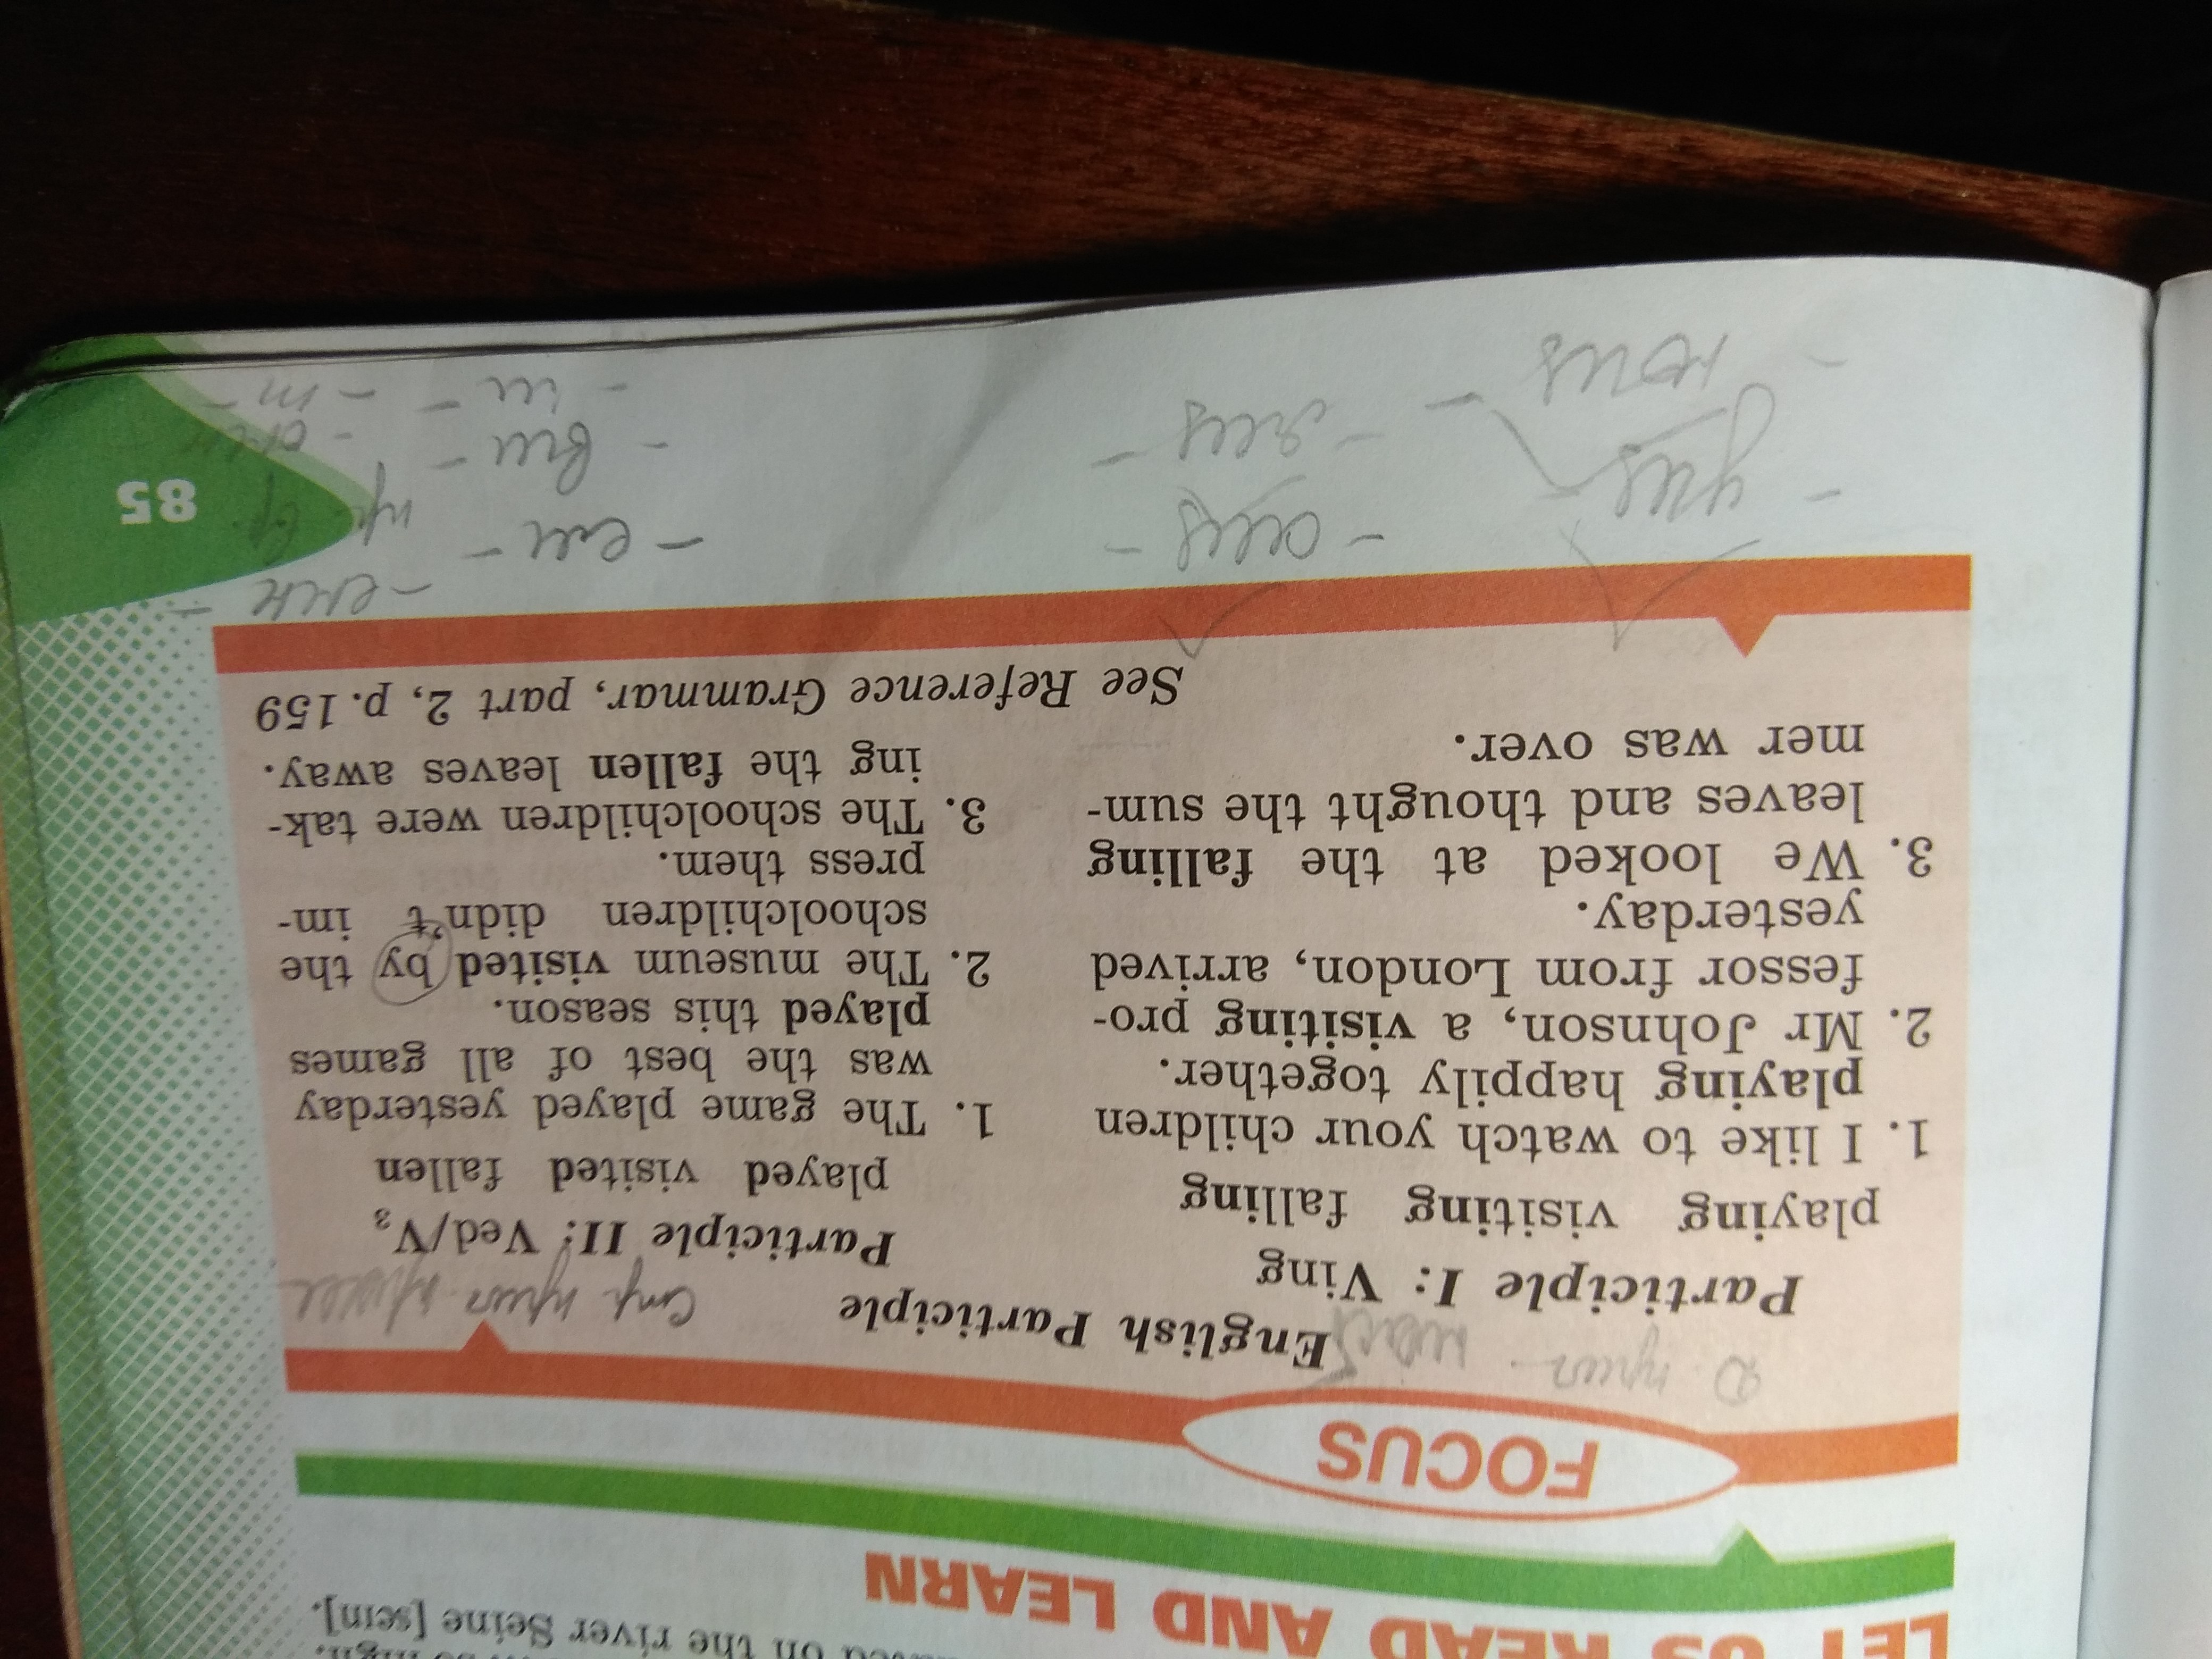 on the river Seine [seɪn].
LET US READ AND LEARN
FOCUS
English Participle
Participle I: Ving
playing visiting falling
1. I like to watch your children
playing happily together.
2. Mr Johnson, a visiting pro-
fessor from London, arrived
yesterday.
3. We looked at the falling
leaves and thought the sum-
mer was over.
Participle II: Ved/V₃
played visited fallen
1. The game played yesterday
was the best of all games
played this season.
2. The museum visited by the
schoolchildren didn't im-
press them.
3. The schoolchildren were tak-
ing the fallen leaves away.
See Reference Grammar, part 2, p. 159
-ущ-
-ющ-
-ащ-
-ящ-
-ем-
-вш-
-ш-
-енн-
-т-
85